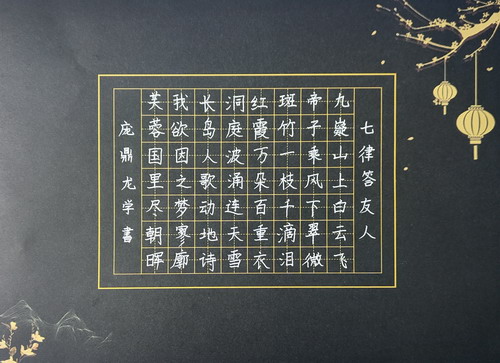 七律答友人
九嶷山上白云飞
帝子乘风下翠微
斑竹一枝千滴泪
红霞万朵百重衣
洞庭波涌连天雪
长岛人歌动地诗
我欲因之梦寥廓
芙蓉国里尽朝晖
庞鼎龙学書